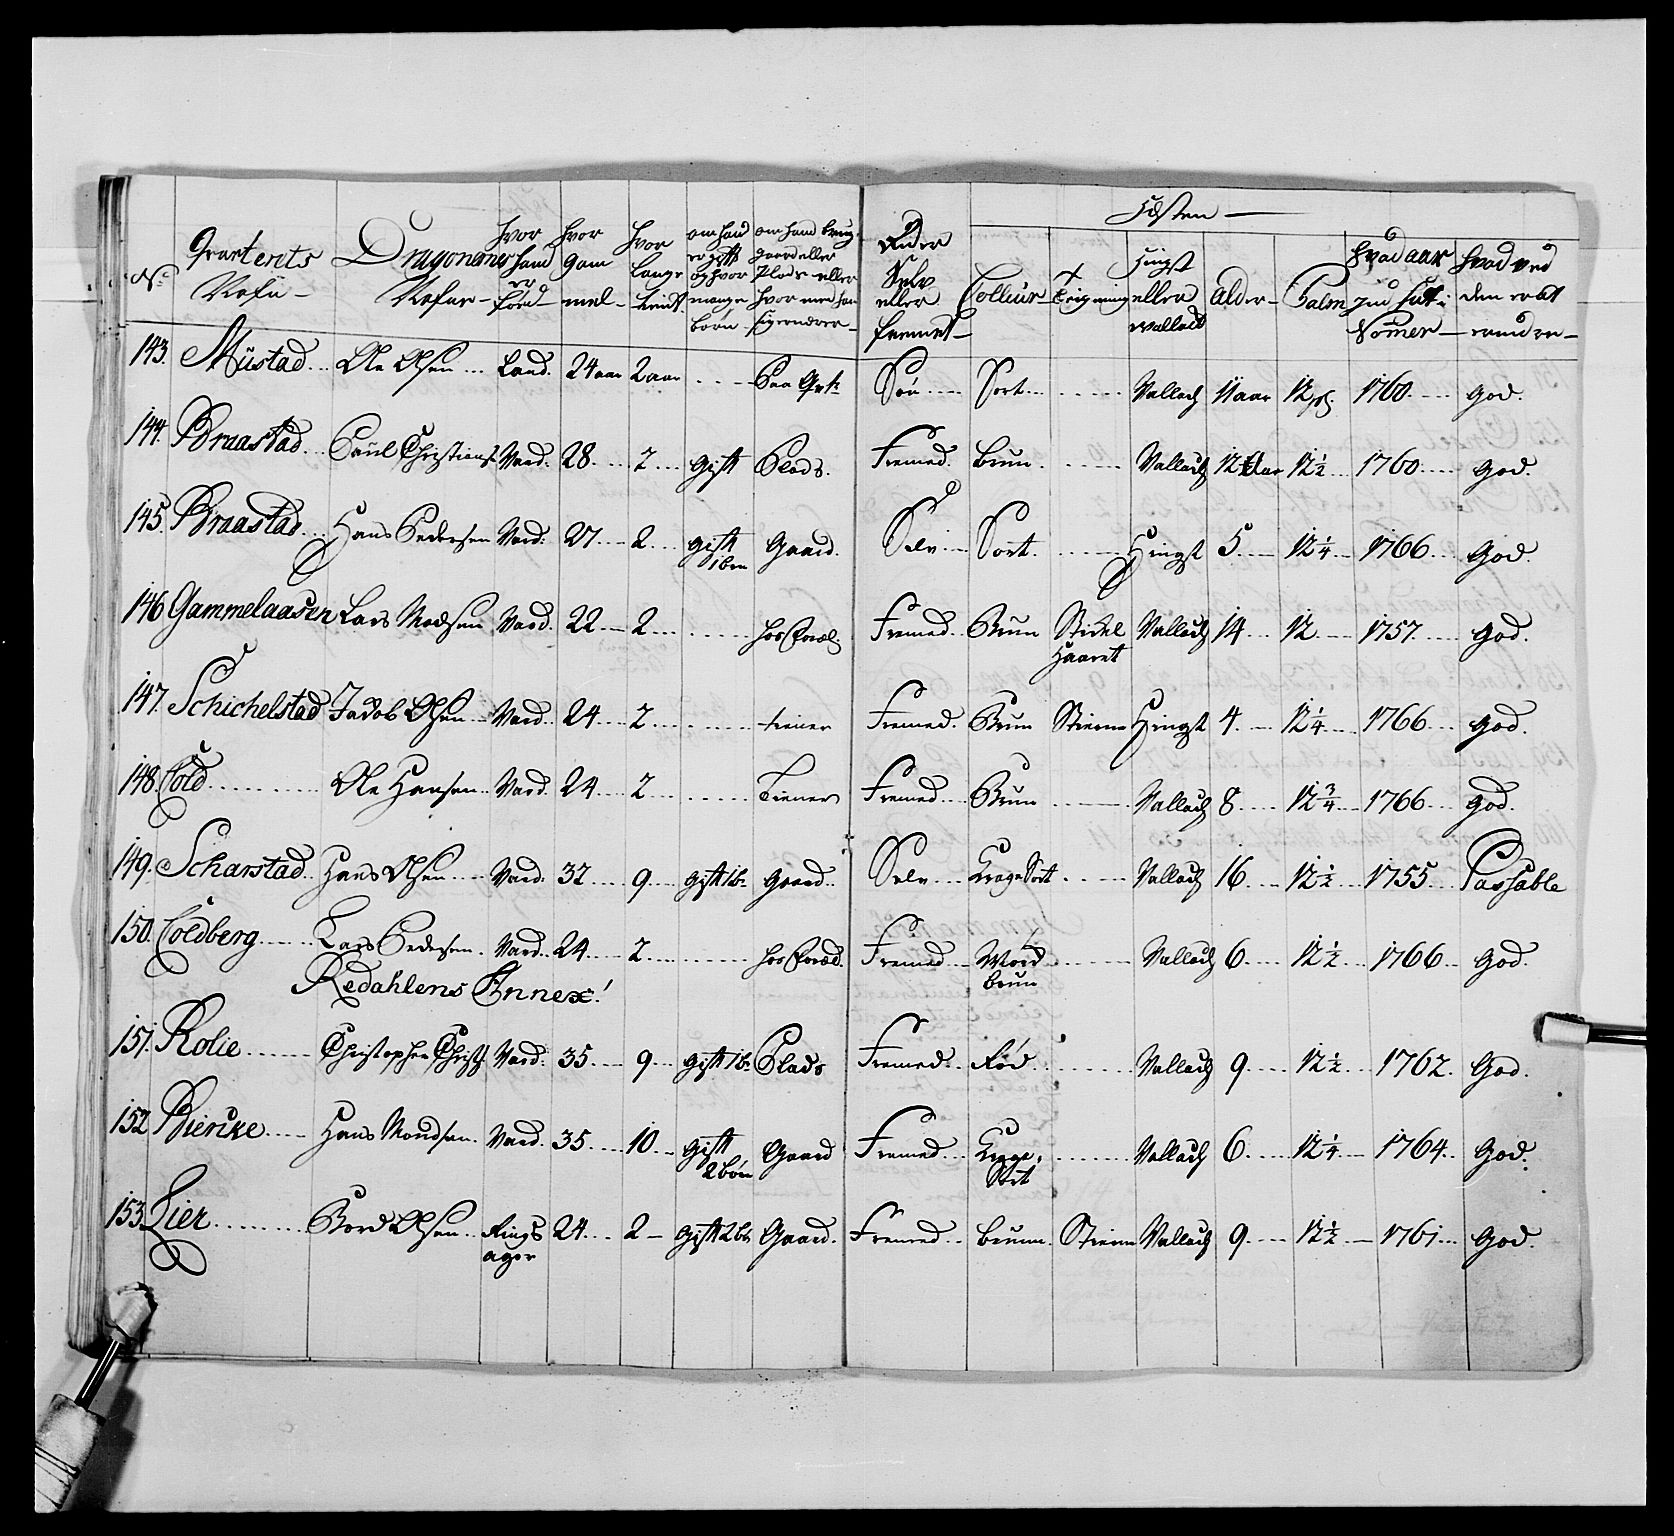 Hæsten
No
Qvarterets Nafn
Dragonernes Nafne
hvor hand er föed
hvor gammel
hvor lange tient
om hand er gift og hvor mange börn
om hand brug gaard eller Plads eller hvor med han sig ernærer
Rider Selv eller fremet
Colleur
Teigning
Hingst eller wallach
Alder
Palm
hvad aar Nömer
hvad ved den er at
143. Müstad Ole Olsen Land. 24 aar 2 aar Paa Qvt: Søn Sort Vallach 11 aar 12 1760 god.
144. Braastad Paül Christians: Vard. 28 2 gift Plads. Fremed. Brun Vallach 12 Aar 12 1/2 1760 god.
145. Braastad Hans Pedersen Vard. 27 2 gift 1 bn Gaard. Selv Sort. Hingst 5 12 1/4 1766 god.
146 Gammelaasen Lars Madsen Vard. 22 2 hos Foræl. Fremed Brun Stikel Haaret Vallach 14 12 1757 god.
147. Schichelstad Jacob Olsen Vard. 24 2 tiener Fremed. Brun Stierne Hingst 4 12 1/4 1766 god.
148. Cold Ole Hansen Vard. 24 2 Tiener Fremed Brun Vallach 8 12 3/4 1766 god.
149. Scharstad Hans Olsen Vard. 32 9 gift 1 b: gaard Selv Krage Sort Vallach 16 12 1/2 1755 Passable
150. Coldberg Lars Pedersen Vard. 24 2 hos Foræld. Fremed Word Brun Vallach 6 12 1/2 1766 god.
Redahlens Annex!
151. Rolie Christopher Christ: Vard. 35 9 gift 1 b: Plads Fremed Rød Vallach 9 12 1/2 1762 God.
152 Biercke Hans Mondsen Vard. 35 10 gift 2 börn Gaard Fremed Krage Sort Vallach 6 12 1/4 1764 God.
153. Lier Bord Olsen Rings ager 24 2 gift 2 b: Gaard. Fremed Brunn Stierne Vallach 9 12 1/2 1761 God.